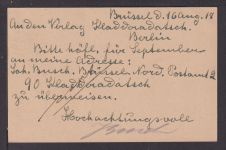 Brüssel d. 16 Aug. 18
An den Verlag Kladderadatsch.
Berlin
Bitte höfl. für September
an meine Adresse:
Joh. Busch. Brüssel Nord. Postamt 2
90 Kladderadatsch
zu überweisen.
Hochachtungsvoll
Busch